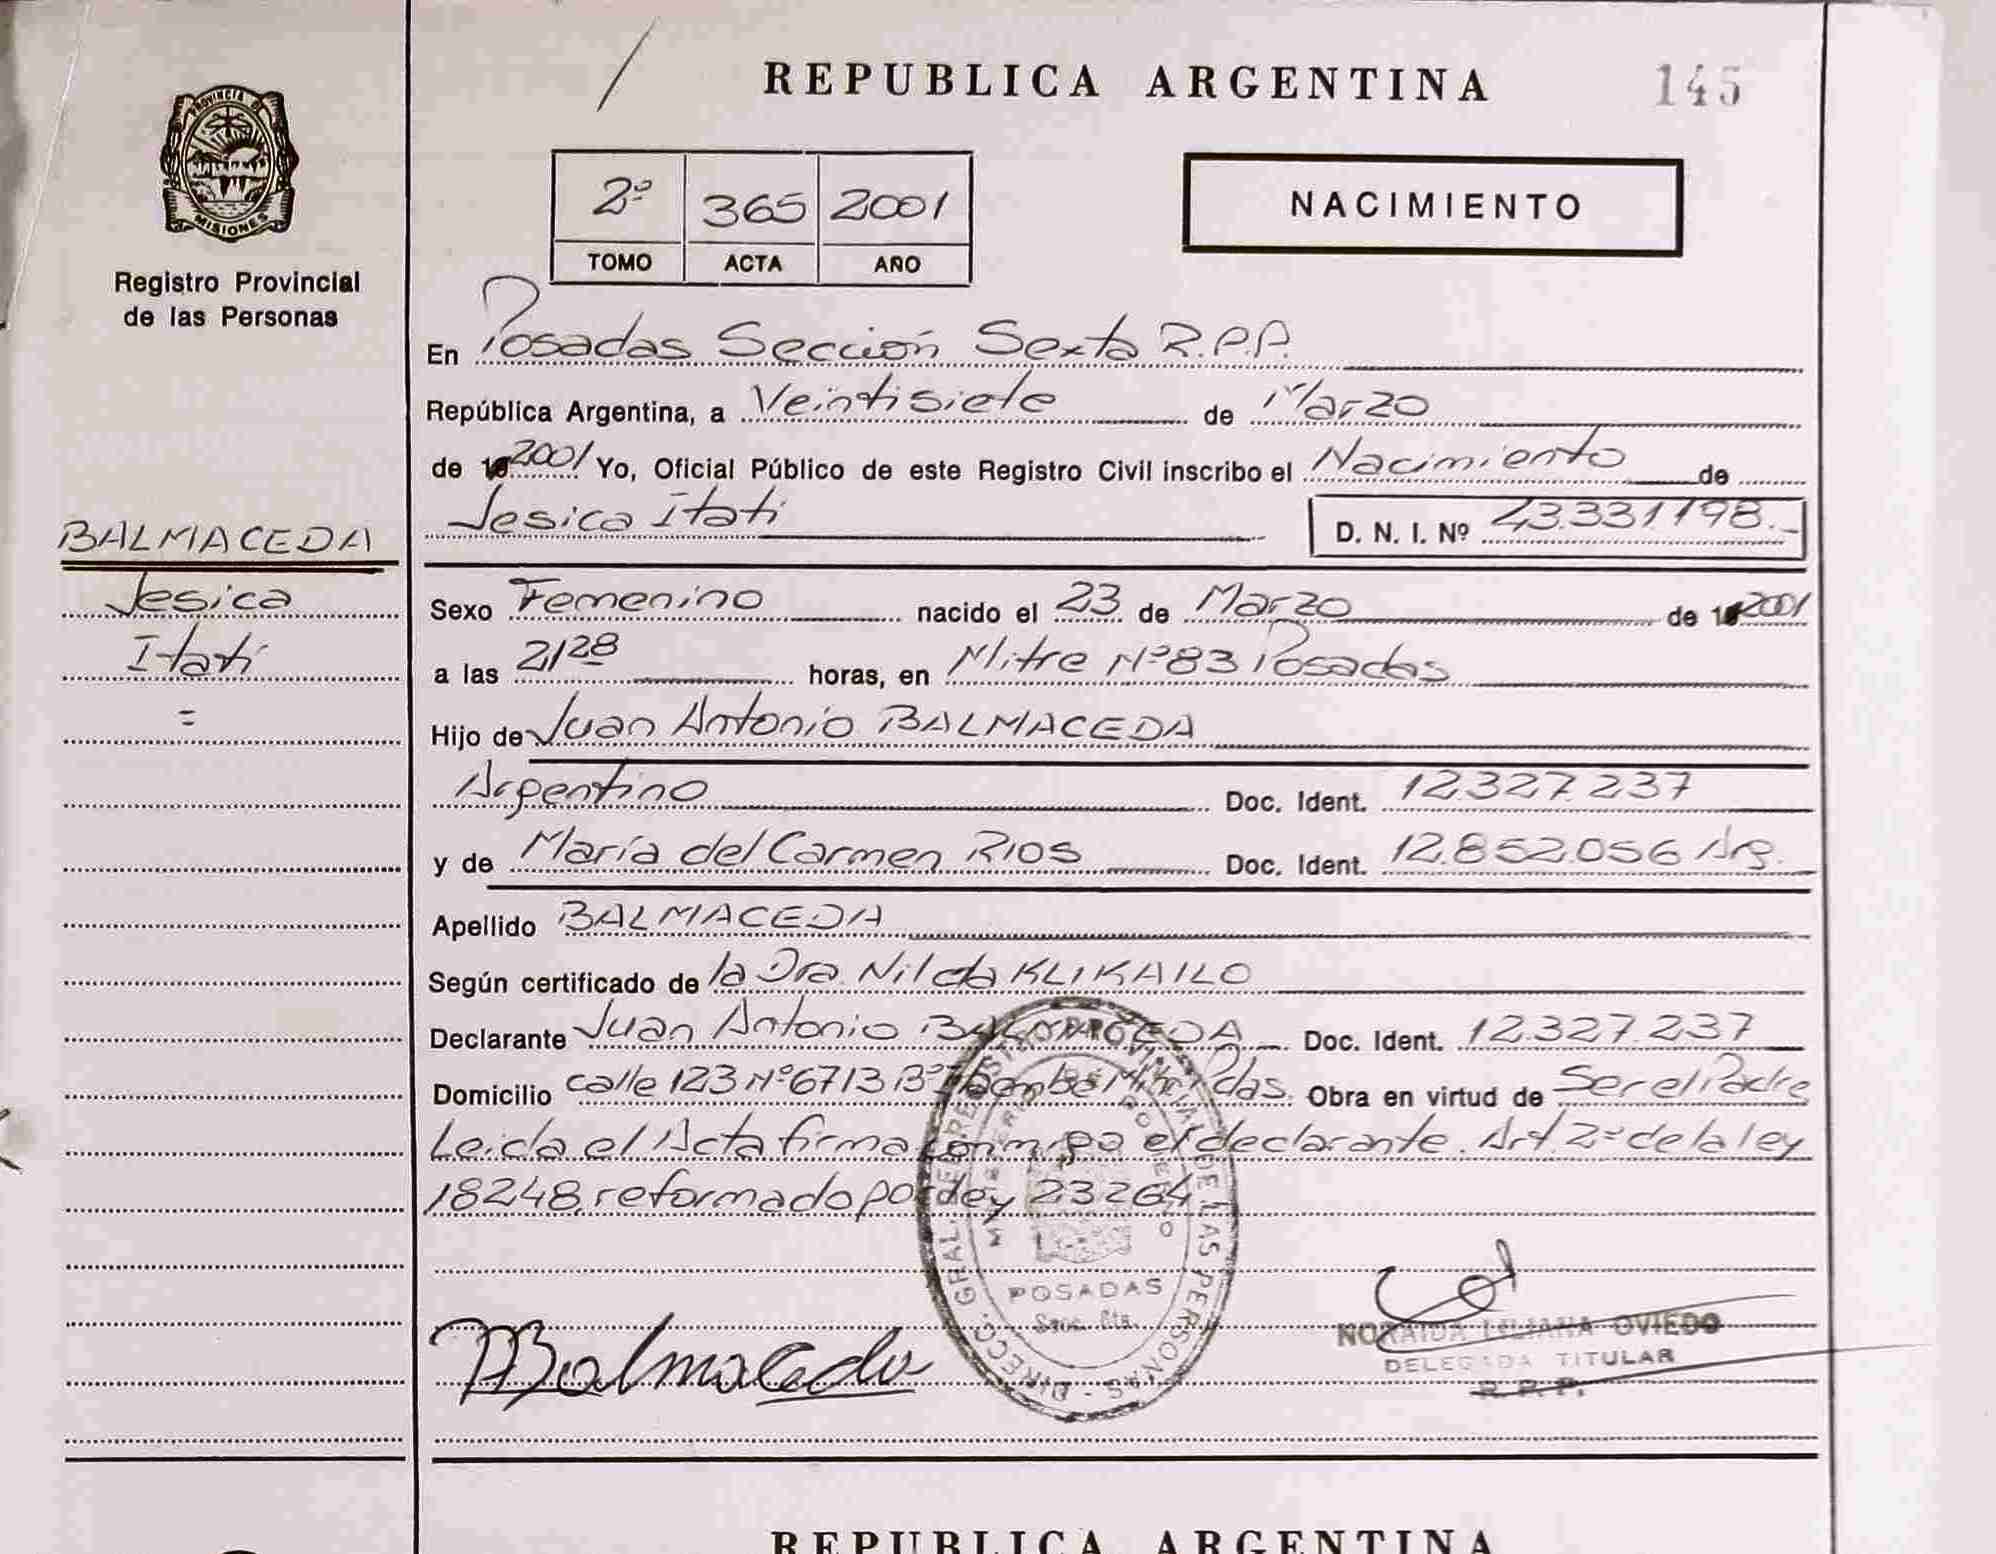 PROVINCIA DE
MISIONES
Registro Provincial
de las Personas
BALMACEDA
Jesica
Itatí
=
REPUBLICA ARGENTINA
145
2º 365 2001
TOMO ACTA AÑO
NACIMIENTO
En Posadas Sección Sexta R.P.P.
República Argentina, a Veintisiete de Marzo
de 2001 Yo, Oficial Público de este Registro Civil inscribo el Nacimiento de
Jesica Itatí D. N. I. Nº 43.331198.
Sexo Femenino nacido el 23 de Marzo de 2001
a las 21 28 horas, en Mitre Nº 83 Posadas
Hijo de Juan Antonio BALMACEDA
Argentino Doc. Ident. 12.327.237
y de María del Carmen RIOS Doc. Ident. 12.852.056 Arg.
Apellido BALMACEDA
Según certificado de la Dra. Nilda KLIKAILO
Declarante Juan Antonio BALMACEDA Doc. Ident. 12.327.237
Domicilio calle 123 Nº 6713 Bº Pdas. Obra en virtud de Ser el Padre
Leida el Acta firma conmigo el declarante. Art. 2º de la ley
18248, reformado por ley 23264
DIRECC. GRAL. DEL REGISTRO PROVINCIAL DE LAS PERSONAS
MISIONES
GOBIERNO
POSADAS
Secc. 6ta.
Balmaceda
NORAIDA LILIANA OVIEDO
DELEGADA TITULAR
R. P. P.
REPUBLICA ARGENTINA